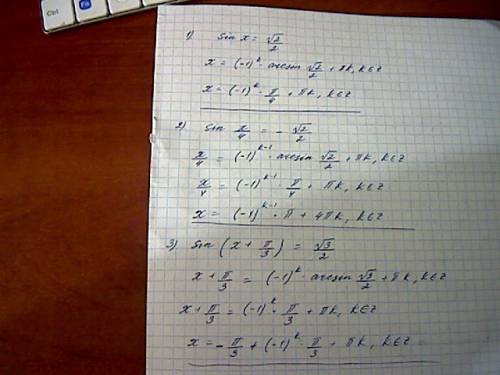 Ctrl
Alt
1) sin x = √2/2
x = (-1)^k · arcsin √2/2 + πk, k∈z
x = (-1)^k · π/4 + πk, k∈z
2) sin x/4 = - √2/2
x/4 = (-1)^(k-1) · arcsin √2/2 + πk, k∈z
x/4 = (-1)^(k-1) · π/4 + πk, k∈z
x = (-1)^(k-1) · π + 4πk, k∈z
3) sin (x + π/3) = √3/2
x + π/3 = (-1)^k · arcsin √3/2 + πk, k∈z
x + π/3 = (-1)^k · π/3 + πk, k∈z
x = - π/3 + (-1)^k · π/3 + πk, k∈z